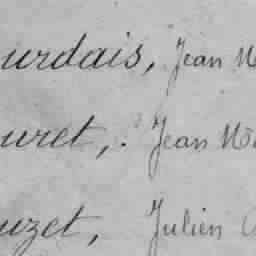 urdais, Jean M
uret, Jean M
uzet, Julien